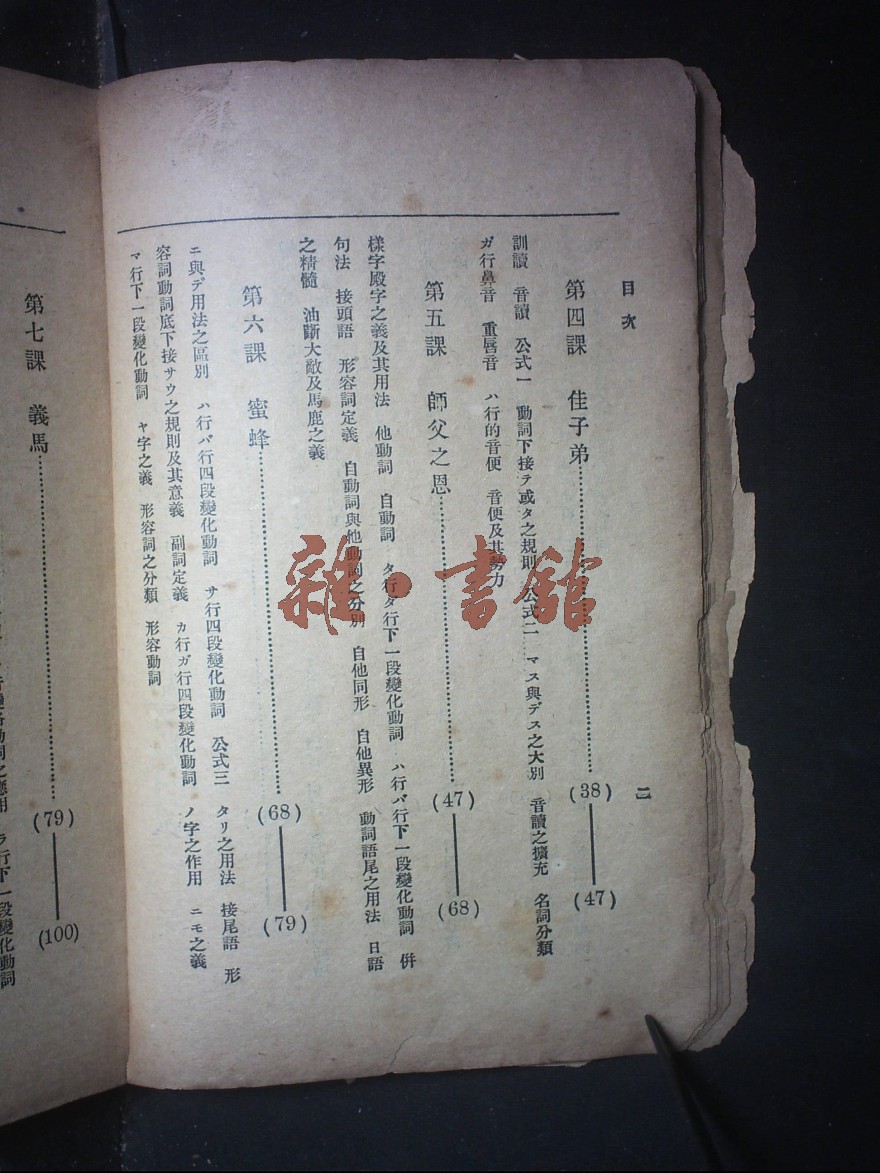 目次
二
第四課 佳子弟……(38)——(47)
訓讀 音讀 公式一 動詞下接テ或タ之規則 公式二 マス與デス之大別 音讀之擴充 名詞分類
ガ行鼻音 重唇音 ハ行的音便 音便及其勢力
第五課 師父之恩……(47)——(68)
樣字殿字之義及其用法 他動詞 自動詞 タ行ダ行下一段變化動詞 ハ行バ行下一段變化動詞 併
句法 接頭語 形容詞定義 自動詞與他動詞之分別 自他同形 自他異形 動詞語尾之用法 日語
之精髓 油斷大敵及馬鹿之義
第六課 蜜蜂……(68)——(79)
ニ與デ用法之區別 ハ行バ行四段變化動詞 サ行四段變化動詞 公式三 タリ之用法 接尾語 形
容詞動詞底下接サウ之規則及其意義 副詞定義 カ行ガ行四段變化動詞 ノ字之作用 ニモ之義
マ行下一段變化動詞 ヤ字之義 形容詞之分類 形容動詞
第七課 義馬……(79)——(100)
動詞之應用 ラ行下一段變化動詞
雜·書館